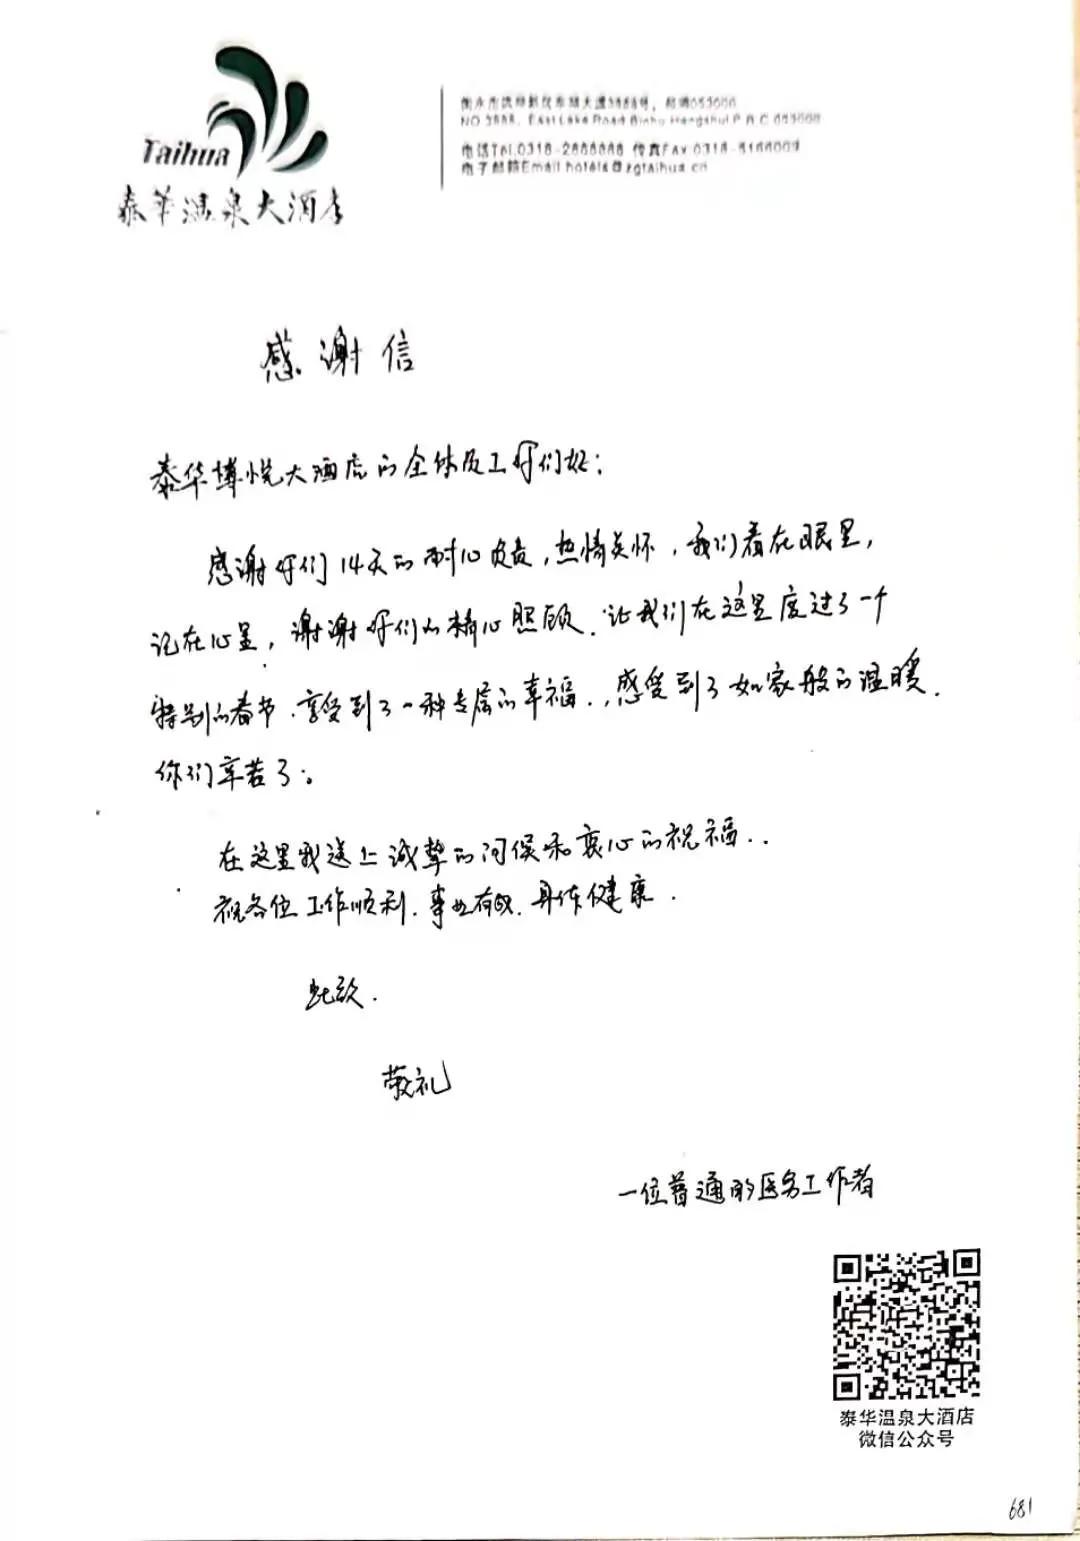 Taihua
泰华温泉大酒店
衡水市滨湖新区东湖大道3888号，邮编053000
NO.3888, East Lake Road Binhu Hengshui P.R.C 053000
电话Tel.0318-2888888 传真Fax.0318-5166009
电子邮箱Email hotels@zgtaihua.cn
感谢信
泰华博悦大酒店的全体员工你们好：
感谢你们14天的耐心负责，热情关怀，我们看在眼里，
记在心里，谢谢你们的精心照顾．让我们在这里度过了一个
特别的春节．享受到了一种专属的幸福．，感受到了如家般的温暖．
你们辛苦了。
在这里我送上诚挚的问候和衷心的祝福．．
祝各位工作顺利．事业有成．身体健康．
此致．
敬礼
一位普通的医务工作者
泰华温泉大酒店
微信公众号
681